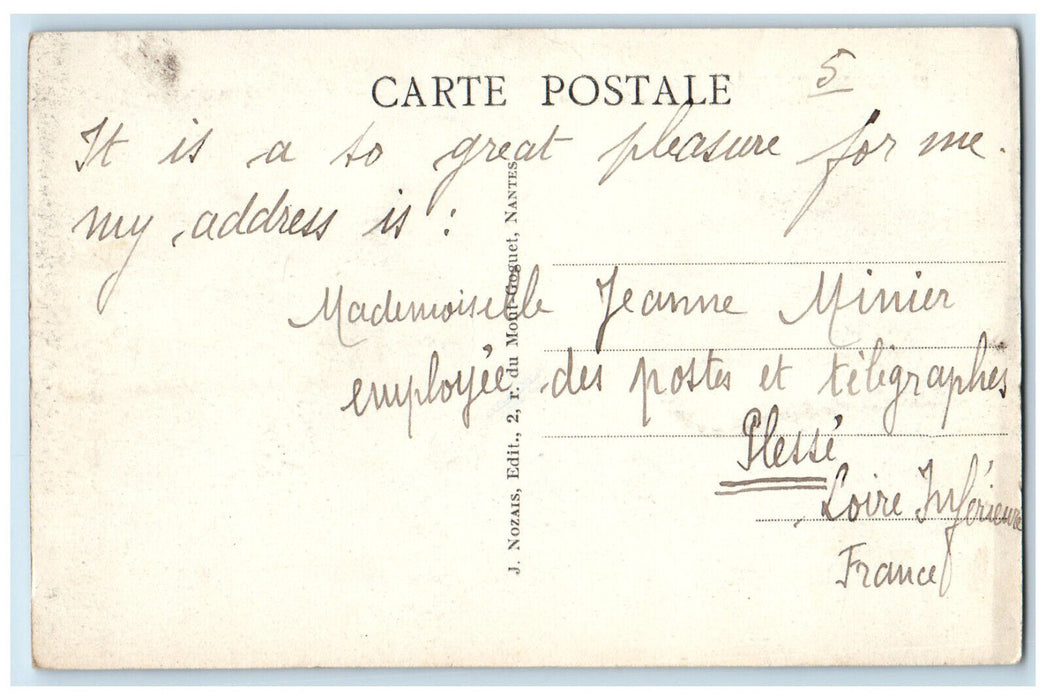 CARTE POSTALE
5
It is a so great pleasure for me.
my address is :
Mademoiselle Jeanne Minier
employée des postes et télégraphes
Plessé
Loire Inférieure
France
J. NOZAIS, Edit., 2, r. du Mont-Goguet, NANTES